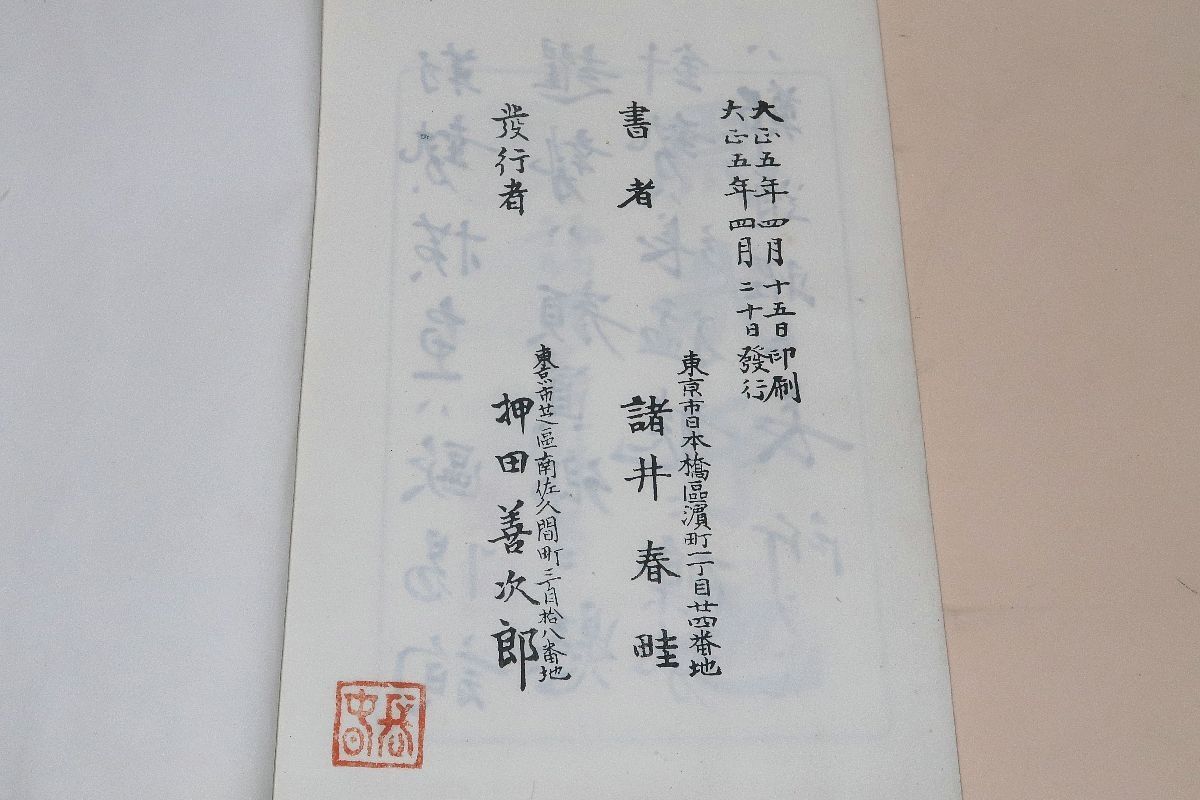 大正五年四月十五日印刷
大正五年四月二十日發行
東京市日本橋區濱町一丁目廿四番地
書者 諸井春畦
東京市芝區南佐久間町二丁目拾八番地
發行者 押田善次郎